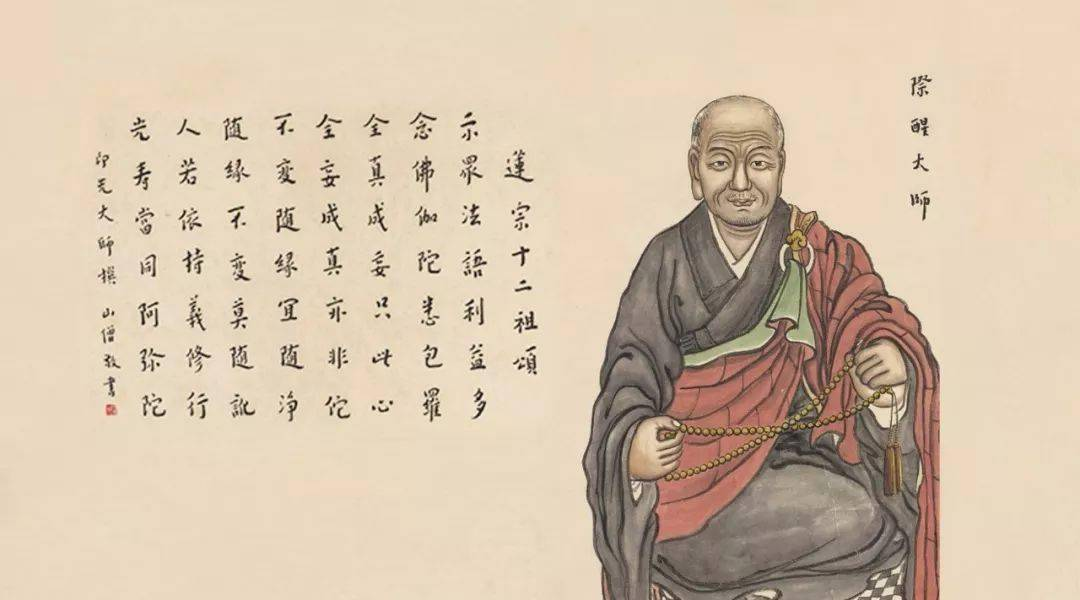 際醒大師
蓮宗十二祖頌
示眾法語利益多
念佛伽陀悉包羅
全真成妄只此心
全妄成真亦非佗
不變随緣冝随净
随緣不變莫随訛
人若依持義修行
光寿當同阿弥陀
印光大師撰 山僧敬書